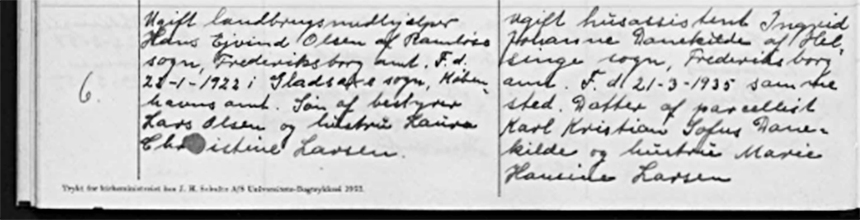 6.
Ugift landbrugsmedhjælper
Hans Ejvind Olsen af Ramløse
sogn, Frederiksborg amt. F. d.
22-1-1922 i Gladsaxe sogn, Køben-
havns amt. Søn af bestyrer
Lars Olsen og hustru Laura
Christine Larsen.
ugift husassistent Ingrid
Johanne Danekilde af Hel-
singe sogn, Frederiksborg
amt. F. d. 21-3-1935 samme
sted. Datter af parcellist
Karl Kristian Sofus Dane-
kilde og hustru Marie
Hansine Larsen
Trykt for kirkeministeriet hos J. H. Schultz A/S Universitets-Bogtrykkeri 1952.